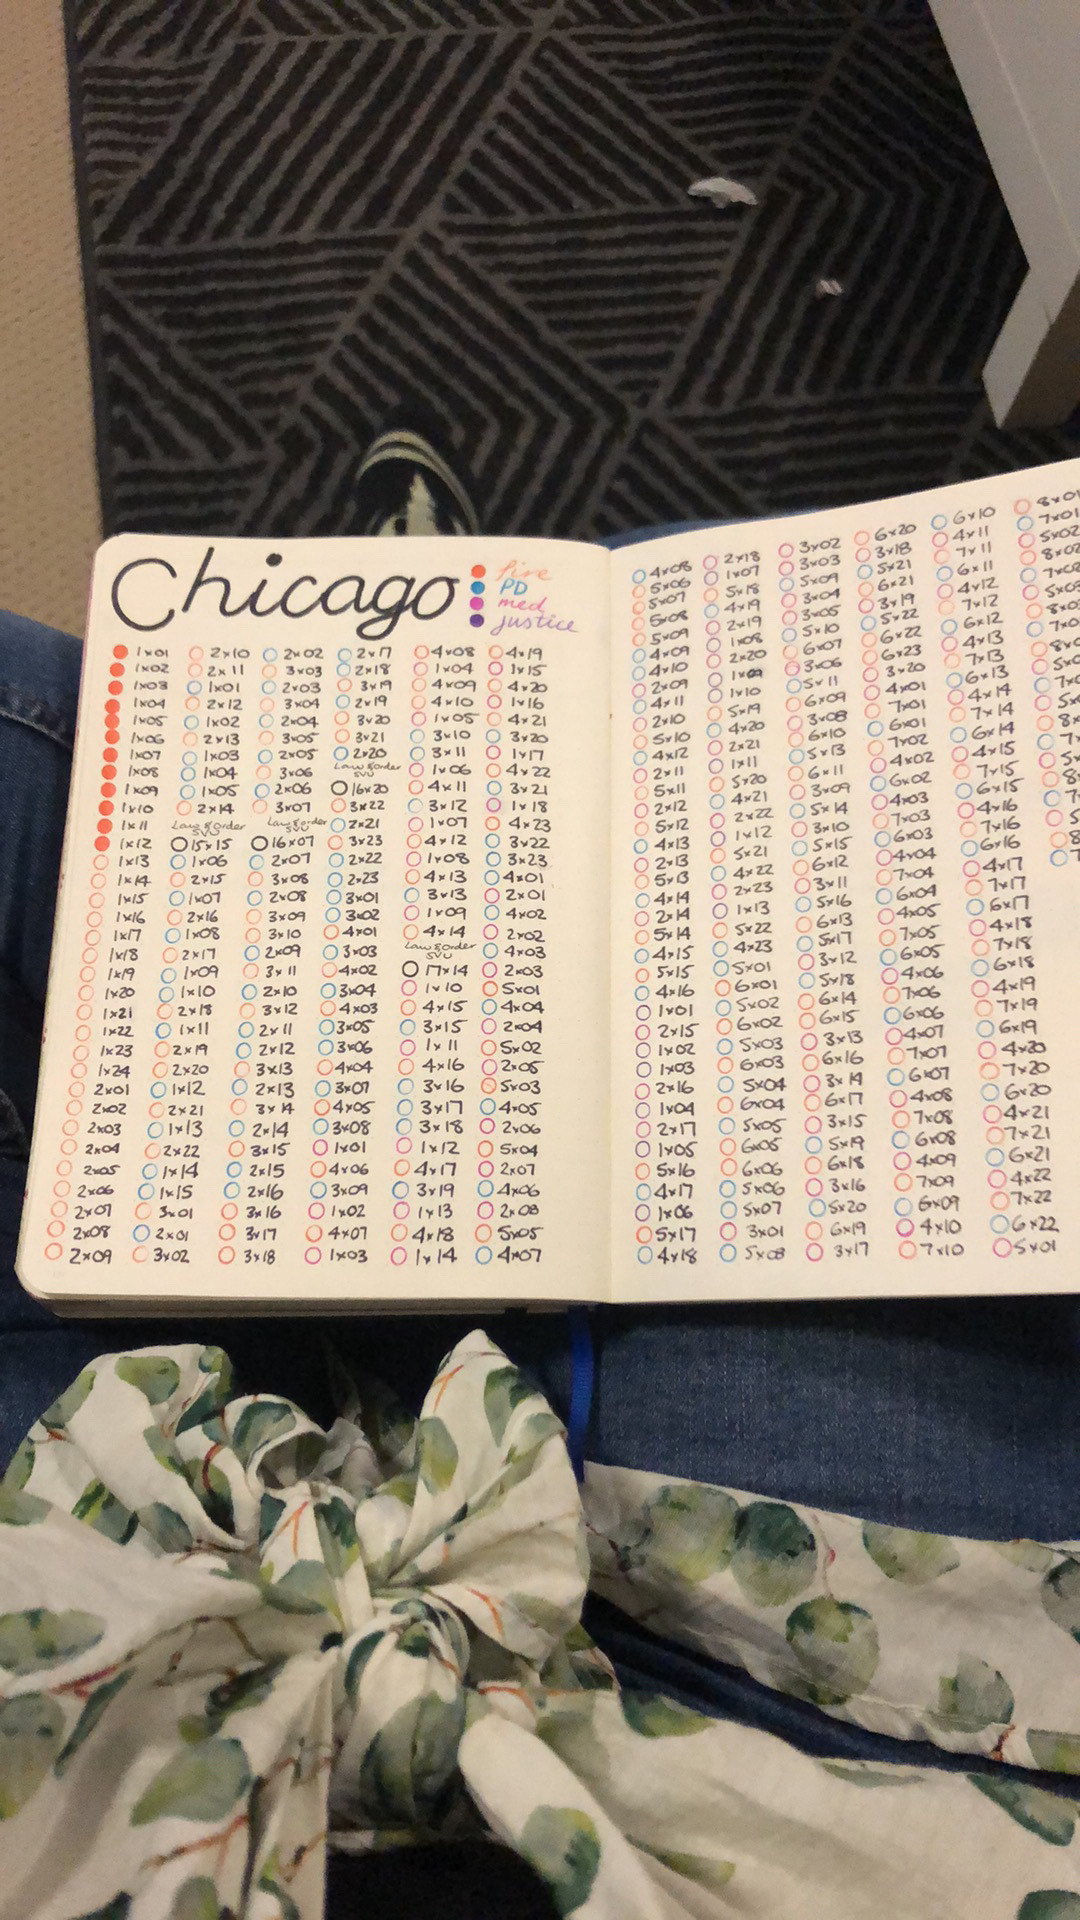 Chicago
fire
PD
med
justice
1x01
1x02
1x03
1x04
1x05
1x06
1x07
1x08
1x09
1x10
1x11
1x12
1x13
1x14
1x15
1x16
1x17
1x18
1x19
1x20
1x21
1x22
1x23
1x24
2x01
2x02
2x03
2x04
2x05
2x06
2x07
2x08
2x09
2x10
2x11
1x01
2x12
1x02
2x13
1x03
1x04
1x05
2x14
Law & order
SVU
15x15
1x06
2x15
1x07
2x16
1x08
2x17
1x09
1x10
2x18
1x11
2x19
2x20
1x12
2x21
1x13
2x22
1x14
1x15
3x01
2x01
3x02
2x02
3x03
2x03
3x04
2x04
3x05
2x05
3x06
2x06
3x07
Law & order
SVU
16x07
2x07
3x08
2x08
3x09
3x10
2x09
3x11
2x10
3x12
2x11
2x12
3x13
2x13
3x14
2x14
3x15
2x15
2x16
3x16
3x17
3x18
2x17
2x18
3x19
2x19
3x20
3x21
2x20
Law & order
SVU
16x20
3x22
2x21
3x23
2x22
2x23
3x01
3x02
4x01
3x03
4x02
3x04
4x03
3x05
3x06
4x04
3x07
4x05
3x08
1x01
4x06
3x09
1x02
4x07
1x03
4x08
1x04
4x09
4x10
1x05
3x10
3x11
1x06
4x11
3x12
1x07
4x12
1x08
4x13
3x13
1x09
4x14
Law & order
SVU
17x14
1x10
4x15
3x15
1x11
4x16
3x16
3x17
3x18
1x12
4x17
3x19
1x13
4x18
1x14
4x19
1x15
4x20
1x16
4x21
3x20
1x17
4x22
3x21
1x18
4x23
3x22
3x23
4x01
2x01
4x02
2x02
4x03
2x03
5x01
4x04
2x04
5x02
2x05
5x03
4x05
2x06
5x04
2x07
4x06
2x08
5x05
4x07
4x08
5x06
5x07
5x08
5x09
4x09
4x10
2x09
4x11
2x10
5x10
4x12
2x11
5x11
2x12
5x12
4x13
2x13
5x13
4x14
2x14
5x14
4x15
5x15
4x16
1x01
2x15
1x02
1x03
2x16
1x04
2x17
1x05
5x16
4x17
1x06
5x17
4x18
2x18
1x07
5x18
4x19
2x19
1x08
2x20
1x09
1x10
5x19
4x20
2x21
1x11
5x20
4x21
2x22
1x12
5x21
4x22
2x23
1x13
5x22
4x23
5x01
6x01
5x02
6x02
5x03
6x03
5x04
6x04
5x05
6x05
6x06
5x06
5x07
3x01
5x08
3x02
3x03
5x09
3x04
3x05
5x10
6x07
3x06
5x11
6x09
3x08
6x10
5x13
6x11
3x09
5x14
3x10
5x15
6x12
3x11
5x16
6x13
5x17
3x12
5x18
6x14
6x15
3x13
6x16
3x14
6x17
3x15
5x19
6x18
3x16
5x20
6x19
3x17
6x20
3x18
5x21
6x21
3x19
5x22
6x22
6x23
3x20
4x01
7x01
6x01
7x02
4x02
6x02
4x03
7x03
6x03
4x04
7x04
6x04
4x05
7x05
6x05
4x06
7x06
6x06
4x07
7x07
6x07
4x08
7x08
6x08
4x09
7x09
6x09
4x10
7x10
6x10
4x11
7x11
6x11
4x12
7x12
6x12
4x13
7x13
6x13
4x14
7x14
6x14
4x15
7x15
6x15
4x16
7x16
6x16
4x17
7x17
6x17
4x18
7x18
6x18
4x19
7x19
6x19
4x20
7x20
6x20
4x21
7x21
6x21
4x22
7x22
6x22
5x01
8x01
7x01
5x02
8x02